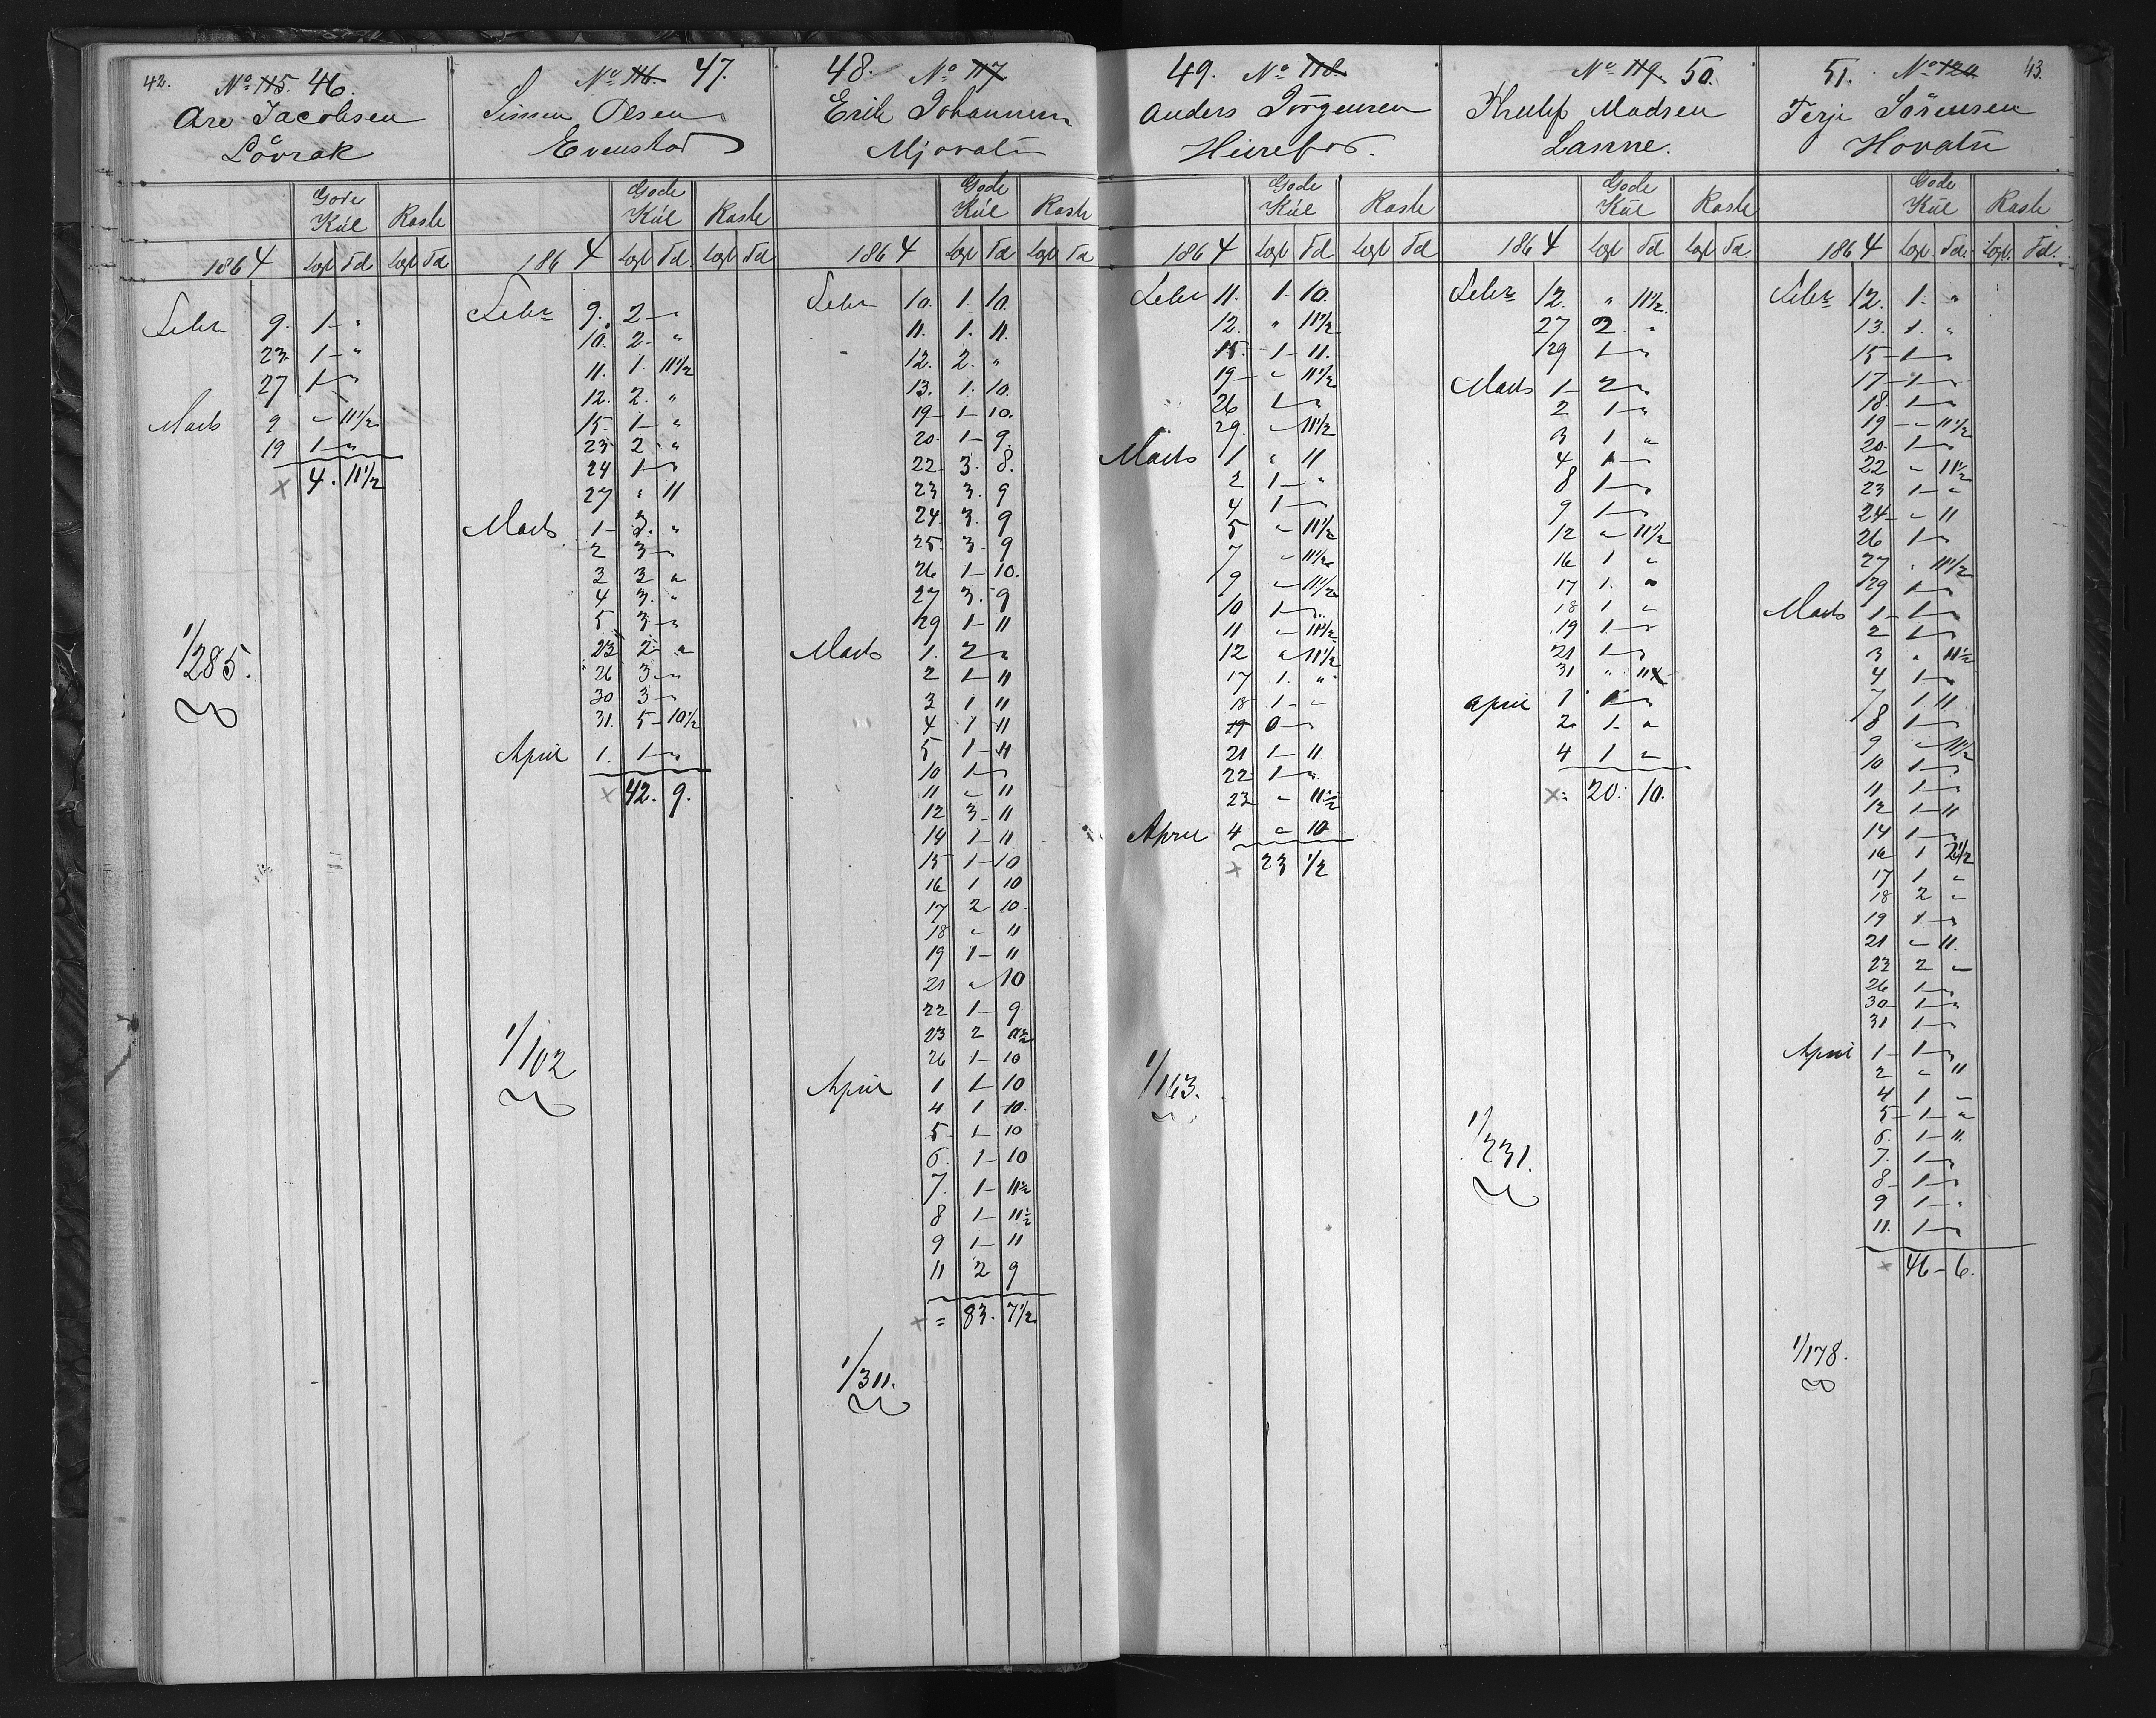 42.
No 115. 46.
Are Jacobsen
Lövrak
Gode Kúl Raske
1864 Legt Td Legt Td
Febr 9. 1 - "
23. 1 - "
27 1 - "
Marts 9 " 11 1/2
19 1 - "
x 4. 11 1/2
1/285.
No 116. 47.
Simen Olsen
Evenstad
Gode Kúl Raske
1864 Legt Td Legt Td
Febr 9. 2 - "
10. 2 - "
11. 1. 11 1/2
12. 2. "
15. 1 - "
23 2 - "
24 1 - "
27 " 11
Marts 1 - 3. "
2 3 - "
3 3 "
4 3. "
5 3 - "
23 2 - "
26 3 - "
30 3 - "
31. 5 - 10 1/2
April 1. 1 - "
x 42. 9.
1/102
48. No 117
Erik Johannesen
Mjovatn
Gode Kúl Raske
1864 Legt Td Legt Td
Febr 10. 1. 10.
11. 1. 11.
12. 2. "
13. 1. 10.
19 - 1 - 10.
20 - 1 - 9.
22 - 3. 8.
23 3. 9
24. 3. 9
25. 3 - 9
26 1 - 10.
27 3. 9
29 1 - 11
Marts 1. 2 - "
2 1 - 11
3 1 11
4 1 11
5 1 - 11
10 1 - "
11 " 11
12 3 - 11
14 1 - 11
15 1 - 10
16 1 10
17 2 10.
18 " 11
19 1 - 11
21 " 10
22 1 - 9
23 2
26 1 - 10
April 1 1 - 10
4 1 10.
5 - 1 - 10
6. 1 - 10
7. 1 - 11 1/2
8 1 - 11 1/2
9 1 - 11
11 2 9
x = 83. 7 1/2
1/311.
49. No 118.
Anders Jörgensen
Heirefos.
Gode Kúl Raske
1864 Legt Td Legt Td
Febr 11. 1. 10.
12. " 11 1/2
15. 1 - 11.
19 - " 11 1/2
26 1 - "
29. " 11 1/2
Marts 1 " 11
2 1 - "
4 1 - "
5 " 11 1/2
7 " 11 1/2
9 " 11 1/2
10 1 - "
11 " 11 1/2
12 " 11 1/2
17 1. "
18 1 - "
19 0 - "
21 1 - 11
22 1 - "
23 " 11 1/2
April 4 " 10
x 23 1/2
1/163.
No 119. 50.
Madsen
Lanne.
Gode Kúl Raske
1864 Legt Td Legt Td.
Febr 12. " 11 1/2
27 2 "
29 1 - "
Marts 1 - 2 - "
2 1 - "
3 1 "
4 1 - "
8 1 - "
9 1 - "
12 " 11 1/2
16 1 "
17 1. "
18 1 "
19 1 - "
21 1 - "
31 " 11
April 1 1 - "
2 1 - "
4 1 "
x = 20. 10.
1/231.
51. No 120 43.
Terje Sörensen
Hovatn
Gode Kúl Raske
1864 Legt. Td. Legt. Td.
Febr 12. 1. "
13. 1. "
15 - 1 - "
17 - 1 - "
18. 1 - "
19 - " 11 1/2
20. 1 - "
22 " 11 1/2
23 1 - "
24 - " 11
26 1 - "
27 " 11 1/2
29 1 - "
Marts 1 - 1 - "
2 1 - "
3 " 11 1/2
4 1 - "
7 1 11
8 1 - "
9 " 11 1/2
10 1 - "
11 1 - "
12 1 - 11
14 1 - "
16 1 2 1/2
17 1 "
18 2 "
19 1 - "
21 " 11.
23 2 "
26 1 - "
30 - 1 - "
31 1 - "
April 1 - 1 - "
2 " 11
4 1 "
5 - 1 - "
6. 1 - 11.
7. 1 - "
8 - 1 - "
9 1 - "
11. 1 - "
x 46 - 6.
1/178.